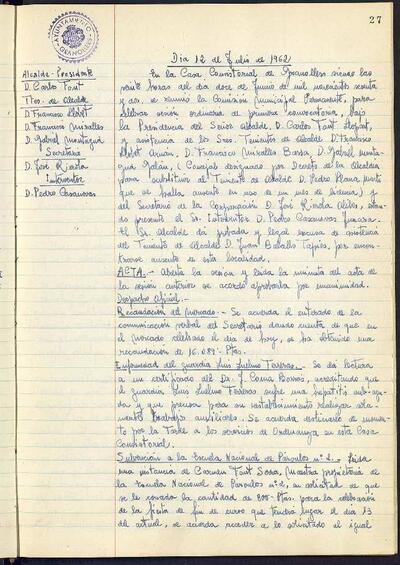 27
AYUNTAMIENTO
GRANOLLERS
Dia 12 de Julio de 1962
Alcalde-Presidente
D. Carlos Font
Ttes. de Alcalde
D. Francisco Llobet
D. Francisco Miralles
D. Gabriel Muntagud
Secretario
D. José Rimola
Interventor
D. Pedro Casanovas
En la Casa Consistorial de Granollers siendo las
veinte horas del día doce de Junio de mil novecientos sesenta
y dos, se reunió la Comisión Municipal Permanente, para
celebrar sesión ordinaria de primera convocatoria, bajo
la Presidencia del Señor Alcalde, D. Carlos Font Llopart,
y asistencia de los Sres. Tenientes de Alcalde D. Francisco
Llobet Arnán, D. Francisco Miralles Barsa, D. Gabriel Munta-
gud Galán, (Concejal designado por Decreto de la Alcaldía
para substituir al Teniente de Alcalde D. Pedro Plana
que se halla ausente en uso de un mes de licencia) y
del Secretario de la Corporación D. José Rimola Aliés, estando
presente el Sr. Interventor D. Pedro Casanovas
El Sr. Alcalde dá probada y legal excusa de asistencia
del Teniente de Alcalde D. Juan Batallo Tapies, por encon-
trarse ausente en esta localidad.
ACTA.- Abierta la sesión y leida la minuta del acta de
la sesión anterior se acordó aprobarla por unanimidad.
Despacho Oficial.-
Recaudación del mercado.- Se acuerda el enterado de la
comunicación verbal del Secretario dando cuenta de que en
el mercado celebrado el dia de hoy, se ha obtenido una
recaudación de 16.089'- Ptas.
Enfermedad del guardia Luis Guelmo Terreros.- Se dá lectura
a un certificado del Dr. J. Coma Borrás, acreditando que
el guardia Luis Guelmo Terreros sufre una hepatitis sub-agu-
da y que precisa para su restablecimiento realizar sola-
mente trabajos auxiliares. Se acuerda destinarlo de momen-
to por la Tarde a los servicios de Ordenanza en esta Casa
Consistorial.
Subvención a la Escuela Nacional de Párvulos nº 2.- Leida
una instancia de Carmen Font Sosa, Maestra propietaria de
la Escuela Nacional de Párvulos nº 2, en solicitud de que
se le conceda la cantidad de 800-Ptas. para la celebración
de la fiesta de fin de curso que tendrá lugar el dia 13
del actual, se acuerda acceder a lo solicitado al igual